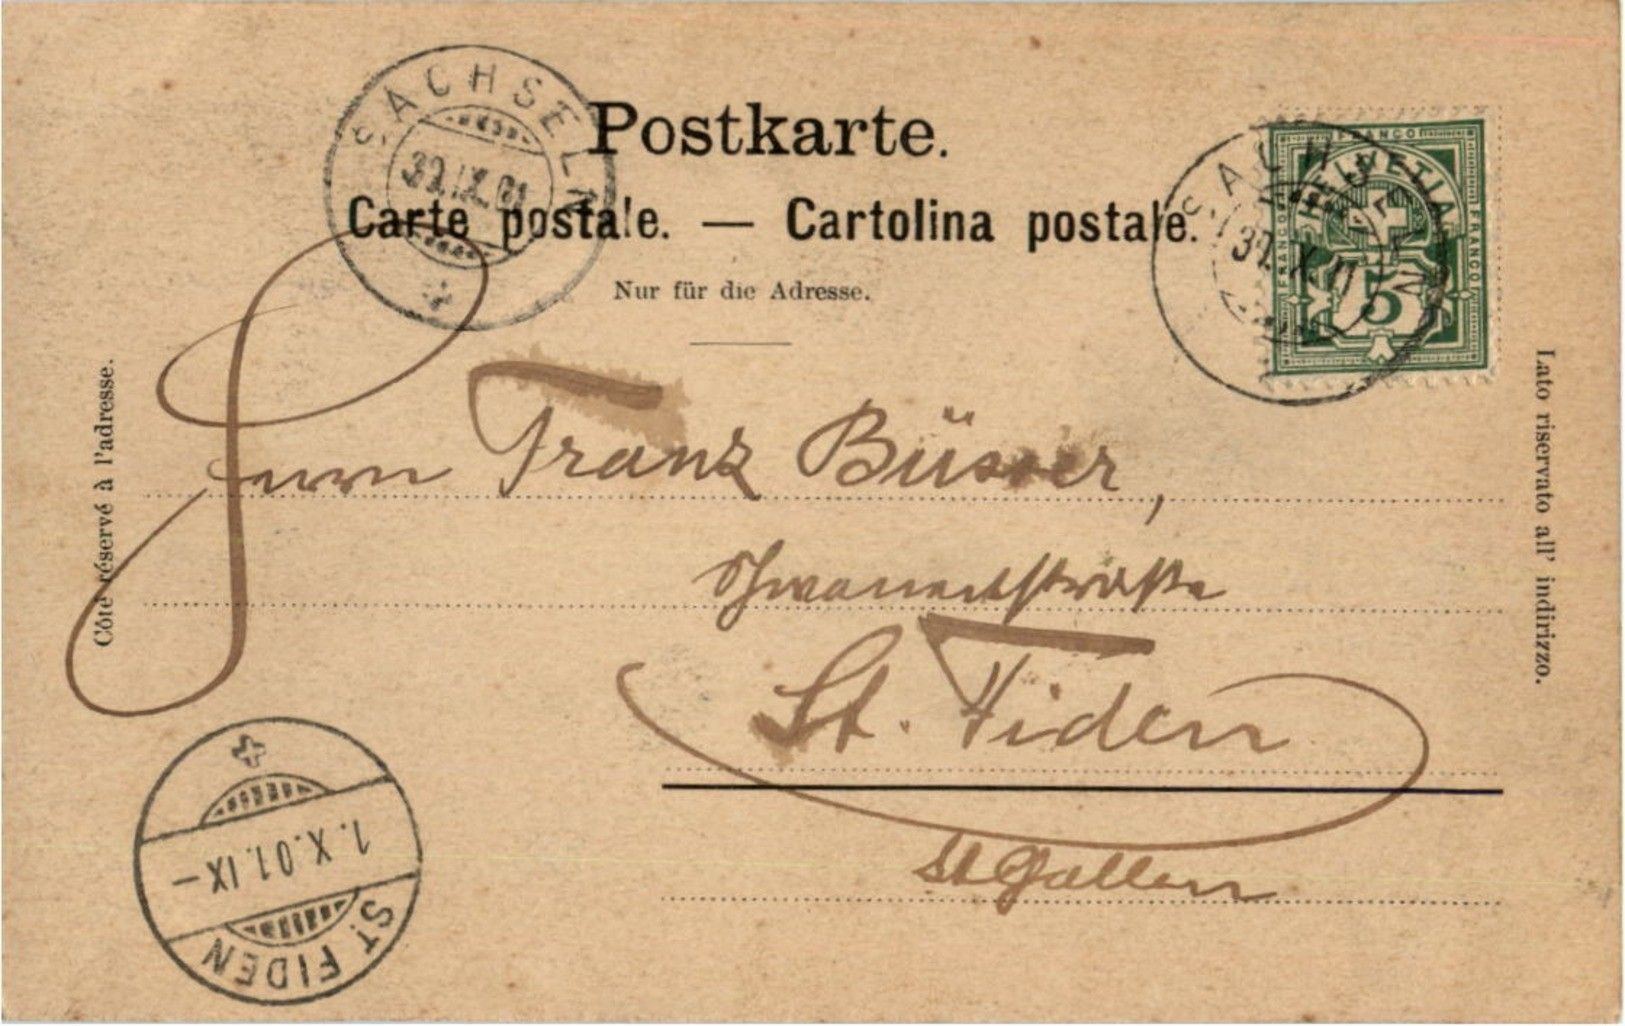 SACHSELN
30.IX.01
Postkarte.
Carte postale. — Cartolina postale.
Nur für die Adresse.
FRANCO
HELVETIA
FRANCO
FRANCO
5
SACHSELN
Côté réservé à l'adresse.
Lato riservato all' indirizzo.
Herrn Franz Büsser,
St. Fiden
St Gallen
1. X. 01. IX –
ST. FIDEN